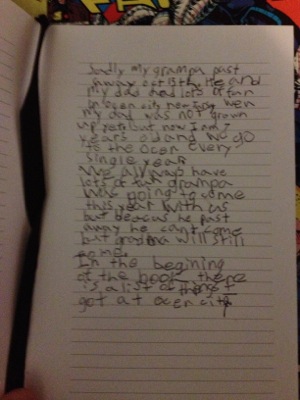 Sadly my grampa past
away oct 13th. He and
my dad had lots of fun
in ocen city new Jersy wen
my dad was not grown
up yet. but now I am 7
years old and we go
to the ocen every
single year
We allways have
lots of fun grampa
was going to come
this year with us
but beacus he past
away he cant come
but gradma will still
come.
In the begining
of the book there
is a list of things I
got at ocen city